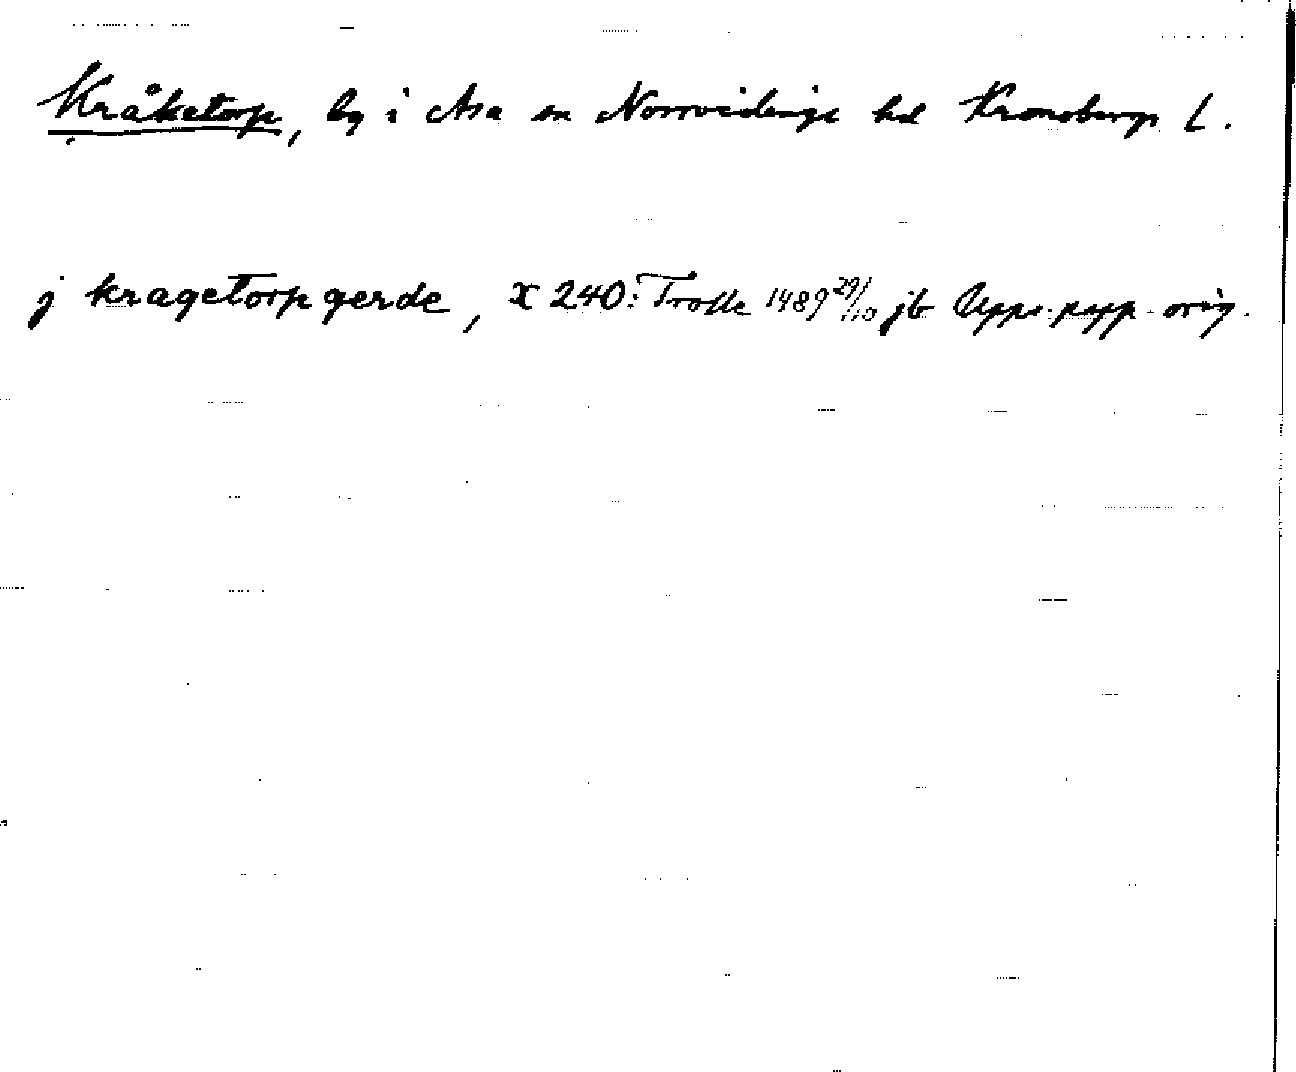 Kråketorp, by i Asa sn Norrvidinge hd Kronobergs L.
j kragetorp gerde, X 240: Trolle 1489 29/10 jb Upps. papp. orig.